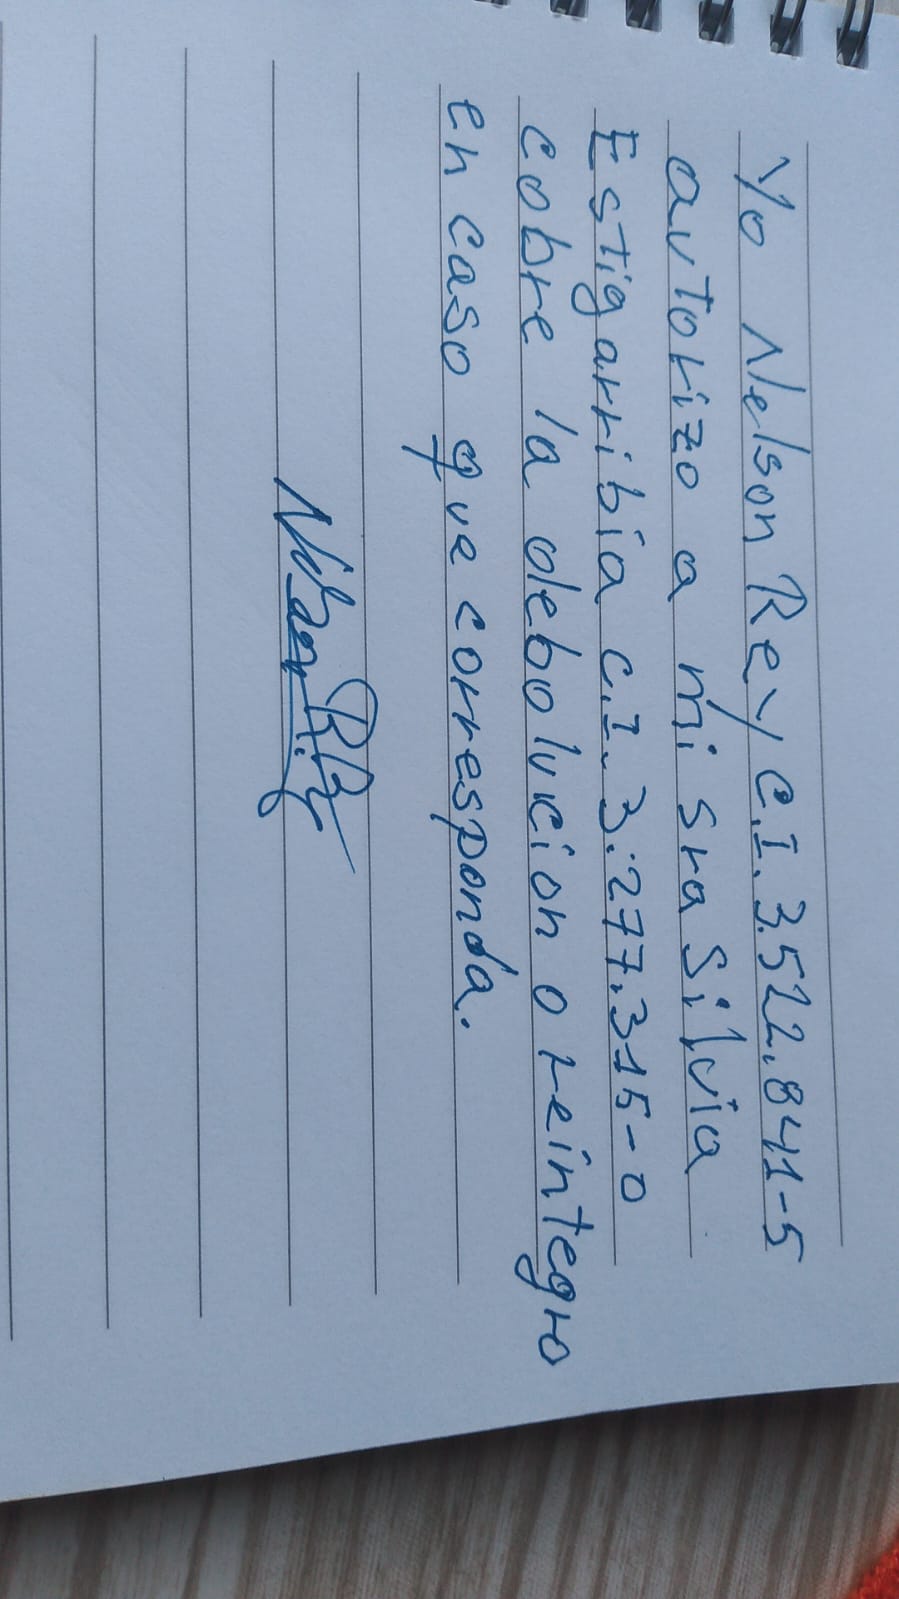 Yo Nelson Rey C.I. 3.522.841-5
autorizo a mi sra Silvia
Estigarribia C.I. 3.277.315-0
cobre la debolucion o reintegro
en caso que corresponda.
Nelson Rey